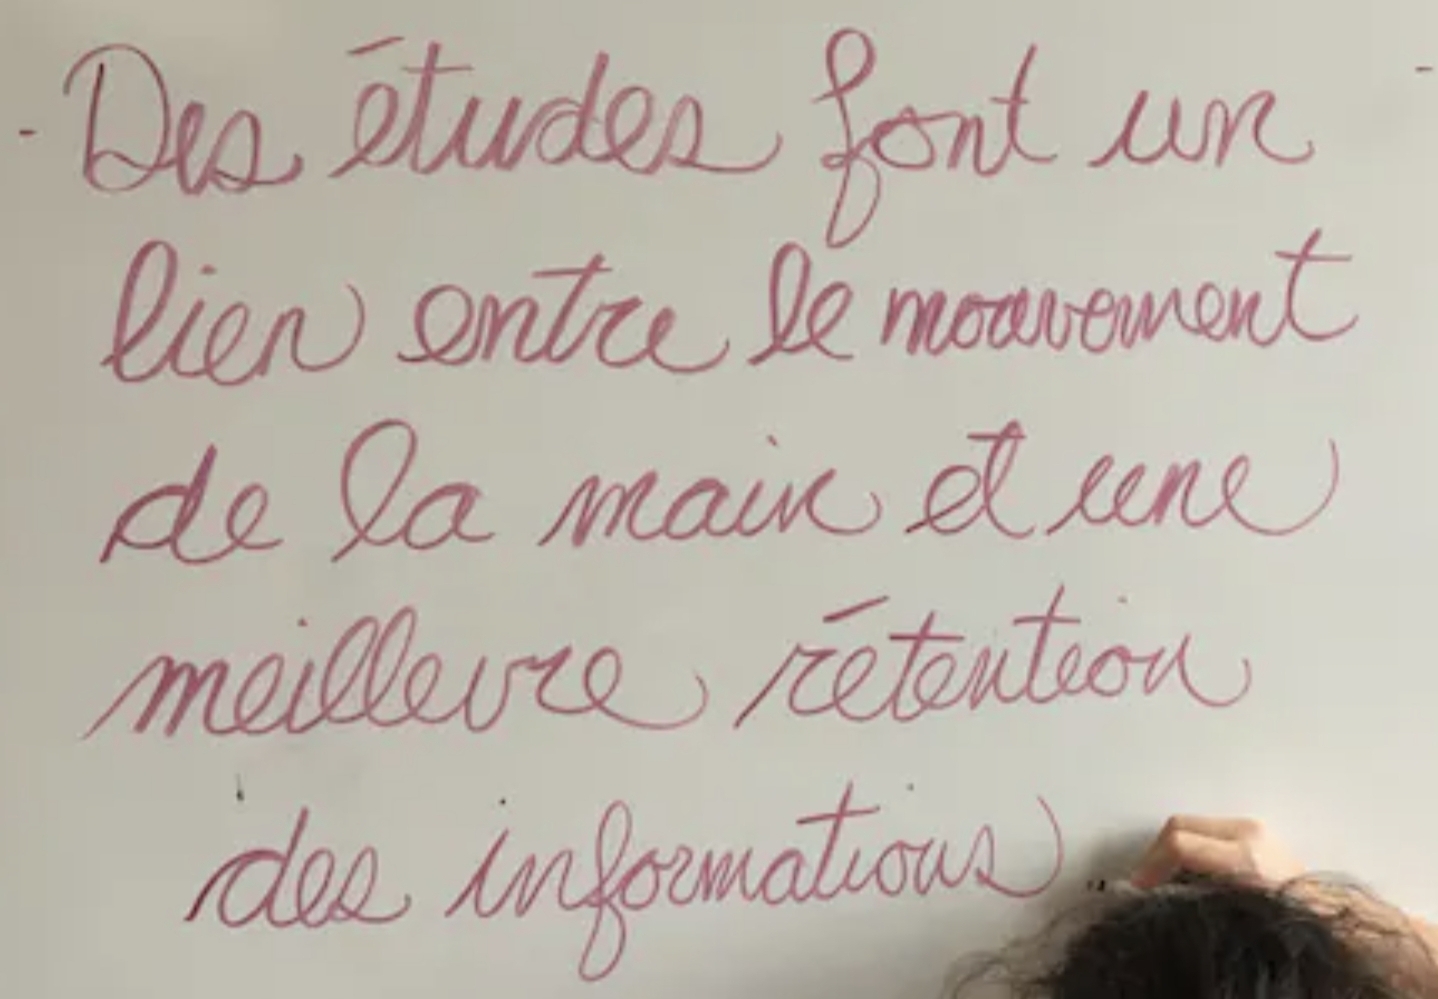 Des études font un
lien entre le mouvement
de la main et une
meilleure rétention
des informations